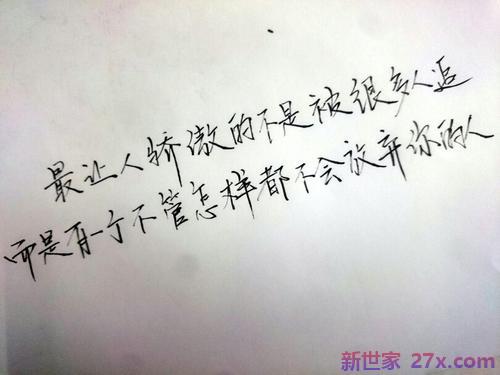 最让人骄傲的不是被很多人追
而是有一个不管怎样都不会放弃你的人
新世家 27x.com